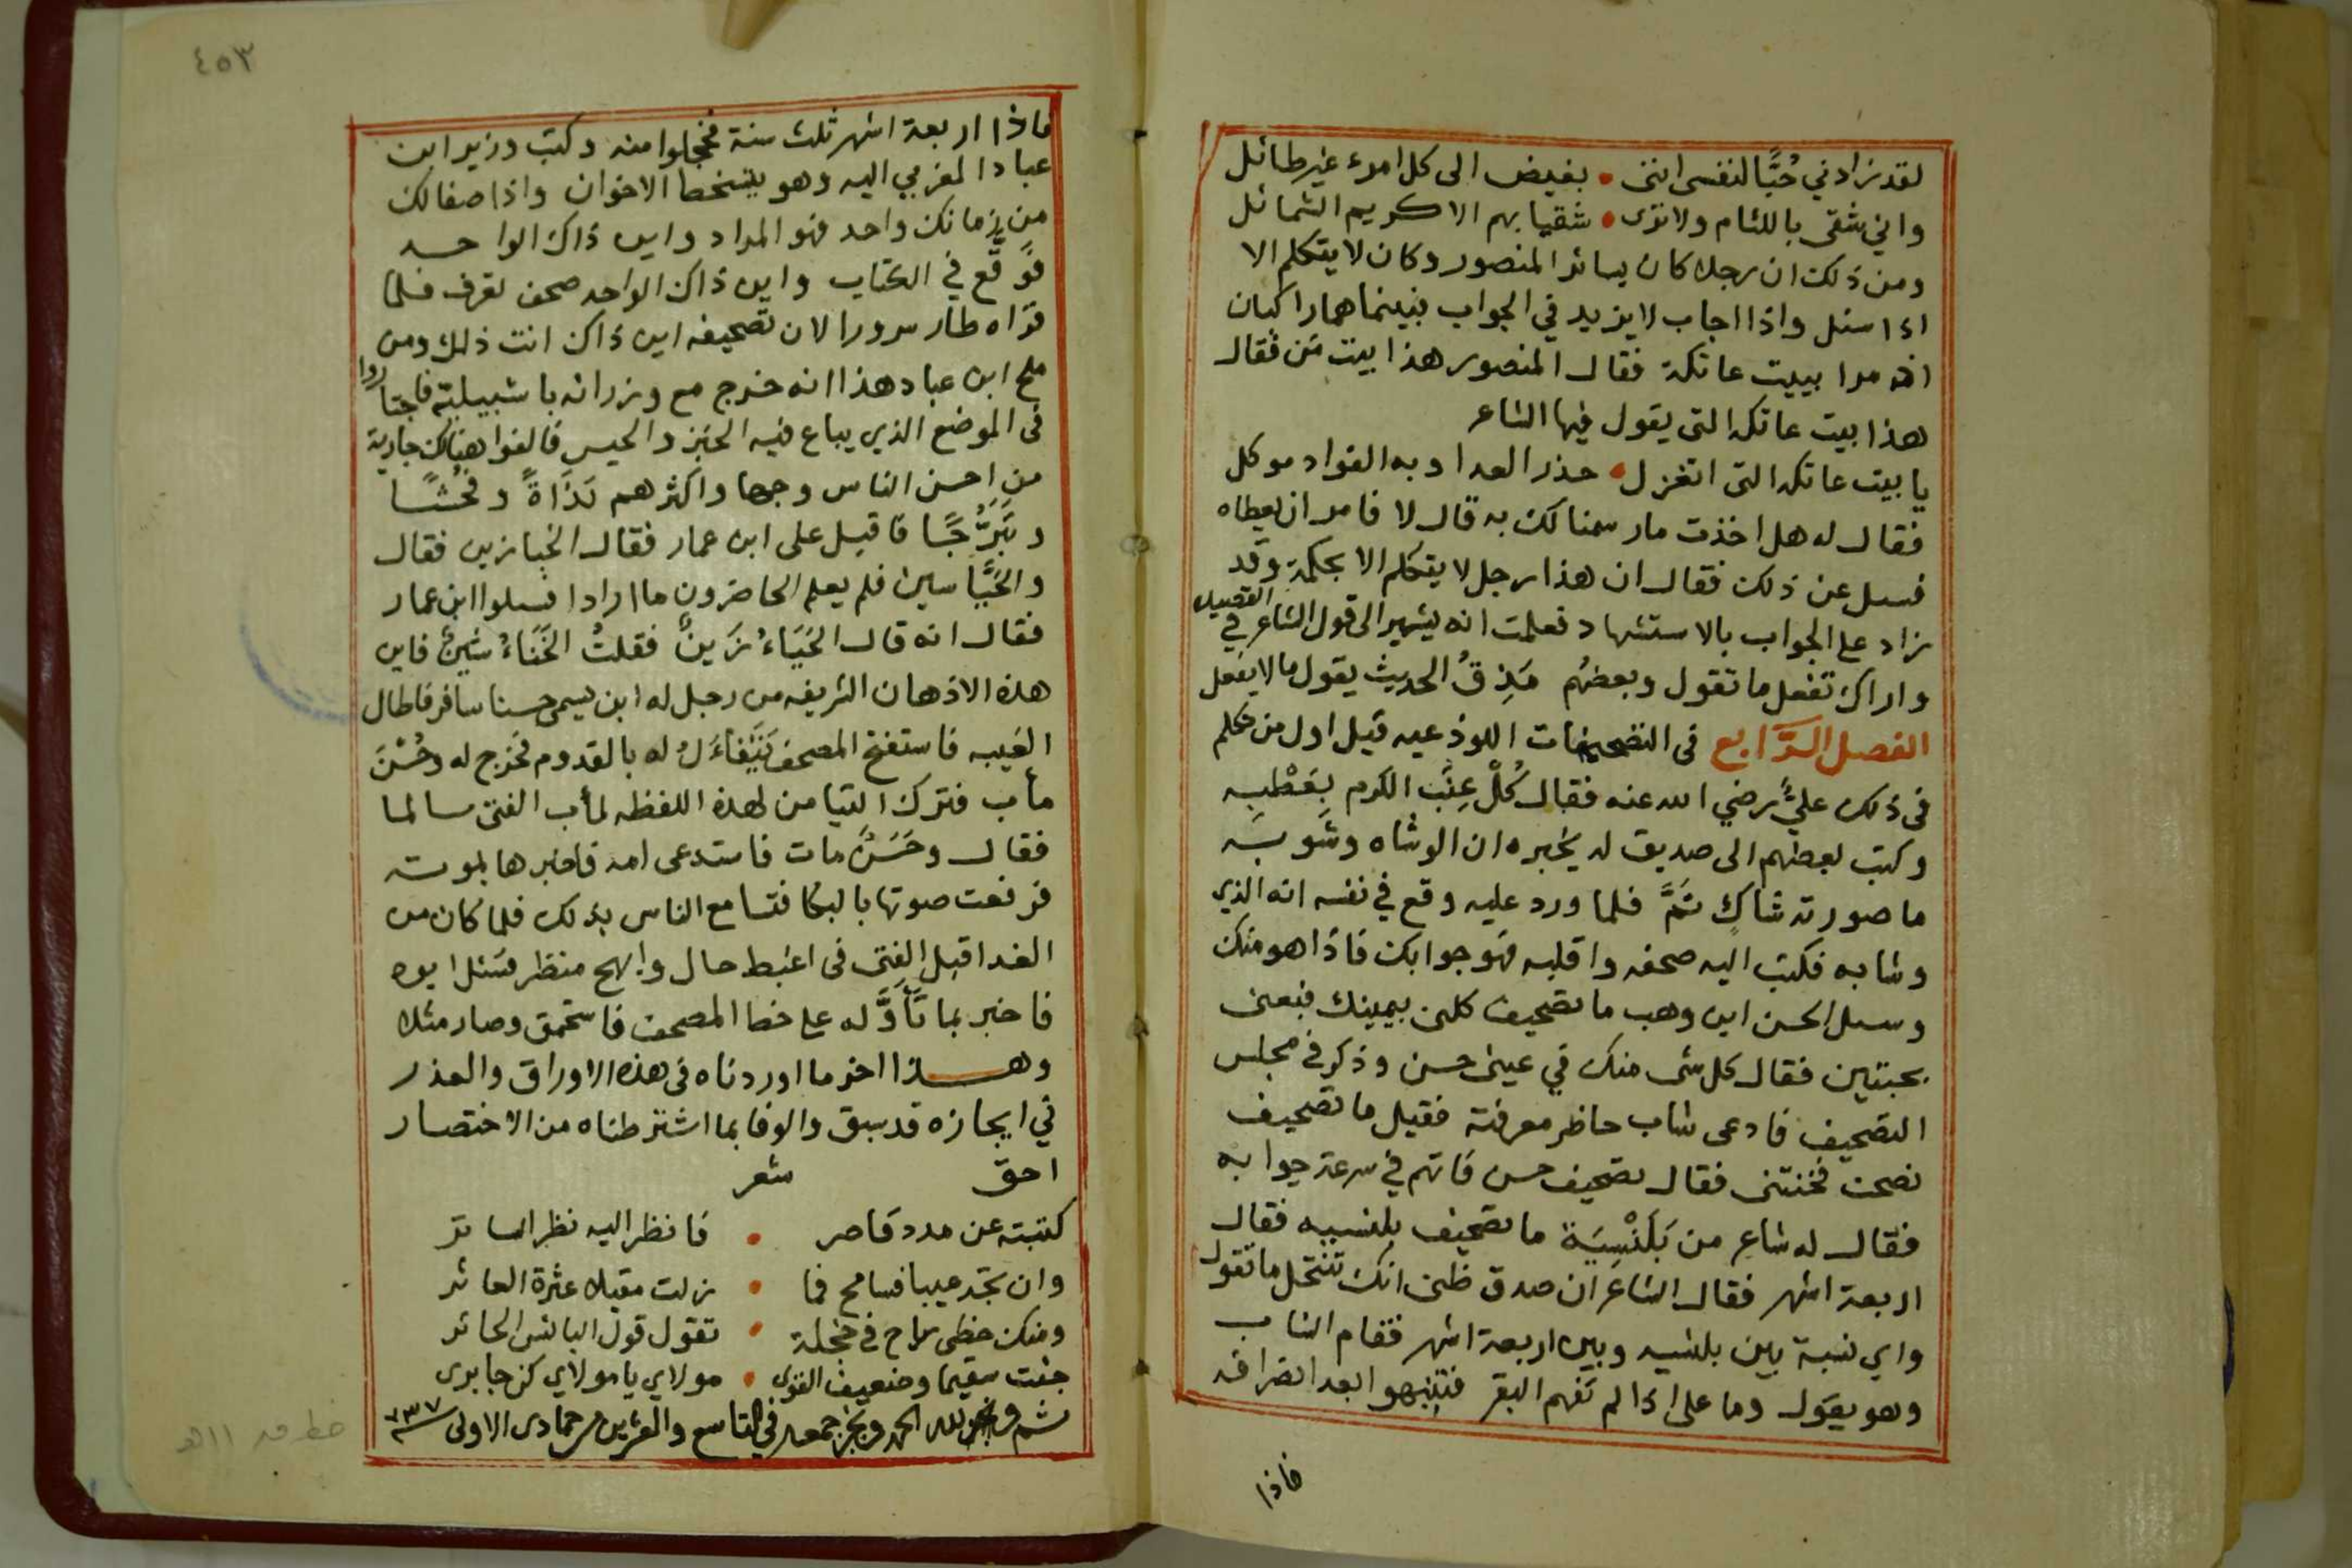 لقد زادني حُبًّا لنفسى اننى • بغيض الى كل امرء غير طائل
واني شقى باللئام ولا ترى • شقيا بهم الا كريم الشمائل
ومن ذلك ان رجلا كان يسائر المنصور وكان لا يتكلم الا
اذا سئل واذا اجاب لا يزيد في الجواب فبينما هما راكبان
اذ مرا ببيت عاتكة فقال المنصور هذا بيت مَن فقال
هذا بيت عاتكه التى يقول فيها الشاعر
يا بيت عاتكه التى اتغزل • حذر العدا وبه الفواد موكل
فقال له هل اخذت ما رسمنا لك به قال لا فامر ان يعطاه
فسل عن ذلك فقال ان هذا رجل لا يتكلم الا بحكمة وقد
زاد على الجواب بالاستشهاد فعلمت انه يشير الى قول الشاعر في القصيده
واراك تفعل ما تقول وبعضهُم مَذِقُ الحديث يقول ما لا يفعل
الفصل الرَّابع فى التصحيفات اللوذعيه قيل اول من تكلم
فى ذلك علىٌّ رضي الله عنه فقال كُلْ عِنَب الكرم بِعَطْبِه
وكتب بعضهم الى صديق له يخبره ان الوشاه وشَو به
ما صورته شاكٍ ثَمَّ فلما ورد عليه وقع في نفسه انه الذي
وشا به فكتب اليه صحفه واقلبه فهو جوابك فاذا هو منك
وسل الحسن ابن وهب ما تصحيف كلنى بيمينك فبعنى
بجبتين فقال كل شى منك في عينى حسن وذكر في مجلس
التصحيف فادعى شاب حاظر معرفته فقيل ما تصحيف
نصحت فخنتنى فقال تصحيف حسن فاتهم في سرعة جوابه
فقال له شاعر من بَلَنْسِيَة ما تصحيف بلنسيه فقال
اربعة اشهر فقال الشاعر ان صدق ظنى انك تنتحل ما تقول
واي نسبة بين بلنسيه وبين اربعة اشهر فقام الشاب
وهو يقول وما على اذا لم تفهم البقر فتنبهوا بعد انصرافه
فاذا
٤٥٣
فاذا اربعة اشهر ثلث سنة فخجلوا منه وكتب وزير ابن
عباد المغربي اليه وهو يتسخط الاخوان واذا صفا لك
من زمانك واحد فهو المراد واين ذاك الواحد
فوَقَّع في الكتاب واين ذاك الواحد صحف تعرف فلما
قراه طار سرورا لان تصحيفه اين ذاك انت ذلك ومن
ملح ابن عباد هذا انه خرج مع وزرائه باشبيلية فاجتازوا
فى الموضع الذي يباع فيه الخبز والجبس فالفوا هناك جارية
من احسن الناس وجها واكثرهم بَذَاةً وفُحْشًا
وتَبَرُّجًا فاقبل على ابن عمار فقال الخبازين فقال
والجَبَّاسين فلم يعلم الحاضرون ما ارادا فسلوا ابن عمار
فقال انه قال الحَيَاءُ زَينٌ فقلتُ الخَنَاءُ شَينٌ فاين
هذه الاذهان الشريفه من رجل له ابن يسمى حسنا سافر فاطال
الغيبه فاستفتح المصحف يَتَفاءَلُ له بالقدوم فخرج له وحُسْنَ
مأب فترك التيامن لهذه اللفظه لمأب الفتى سالما
فقال وحَسَنٌ مات فاستدعى امه فاخبرها بموته
فرفعت صوتها بالبكا فتسامع الناس بذلك فلما كان من
الغد اقبل الفتى فى اغبط حال وابهج منظر فسئل ابوه
فاخبر بما تَأَوَّله على خط المصحف فاستحمق وصار مثلا
وهذا اخر ما اوردناه فى هذه الاوراق والعذر
في ايجازه قد سبق والوفا بما اشترطناه من الاختصار
احق شعر
كتبته عن مدد قاصر • فانظر اليه نظر الساتر
وان تجد عيبا فسامح فما • زلت مقيلا عثرة العاثر
ومنك حظى راح في خجلة • تقول قول البائس الحائر
جئت سقيما وضعيف القوى • مولاي يا مولاي كن جابرى
تم ولله الحمد ونجز جمعه في التاسع والعشرين من جمادى الاولى سنة ٧٣٧
خط ق ١١هـ